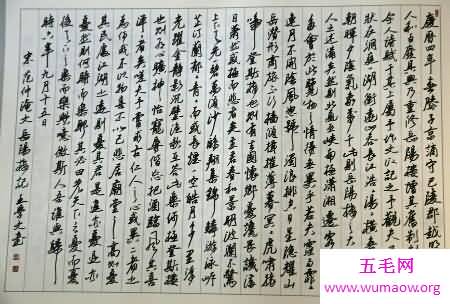 慶曆四年春滕子京謫守巴陵郡越明
人和百廢具興乃重修岳陽樓增其舊制
今人詩賦于其上屬予作文以記之予觀夫
狀在洞庭一湖銜遠山吞長江浩浩湯湯
朝暉夕陰氣象萬千此則岳陽樓之大
人之述備矣然則北通巫峽南極瀟湘遷客
多會於此覽物之情得無異乎若夫霪雨霏霏
連月不開陰風怒號濁浪排空日星隱耀山
岳潛形商旅不行檣傾楫摧薄暮冥冥虎嘯猿
啼登斯樓也則有去國懷鄉憂讒畏譏滿
目蕭然感極而悲者矣至若春和景明波瀾不驚
上下天光一碧萬頃沙鷗翔集錦鱗游泳岸
芷汀蘭郁郁青青而或長煙一空皓月千里浮
光躍金靜影沉璧漁歌互答此樂何極登斯樓
也則有心曠神怡寵辱偕忘把酒臨風其喜
洋洋者矣嗟夫予嘗求古仁人之心或異二者之
為何哉不以物喜不以己悲居廟堂之高則憂
其民處江湖之遠則憂其君是進亦憂退亦
憂然則何時而樂耶其必曰先天下之憂而憂
後天下之樂而樂歟噫微斯人吾誰與歸
時六年九月十五日
宋范仲淹文岳陽樓記
五毛网
www.wumaow.org